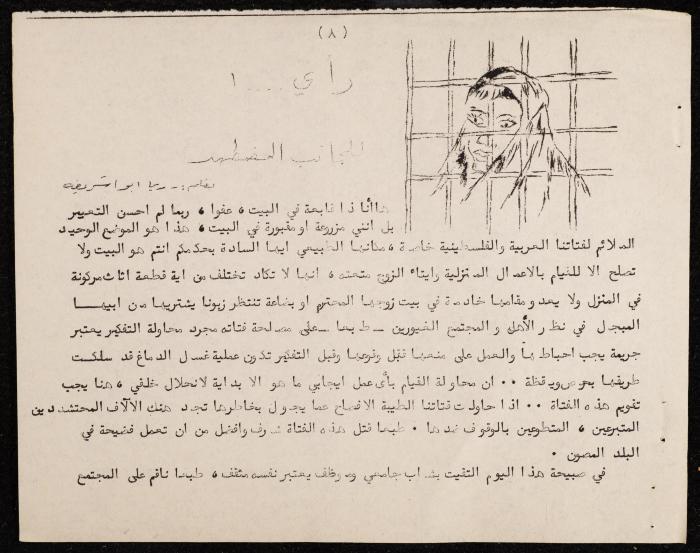 (٨)
رأي .... ١
للجانب المضطهد
بقلم :- ربا ابو شريفه
هاأنا ذا قابعة في البيت ، عفوا ، ربما لم احسن التعبير
بل انني مزروعة او مقبورة في البيت ، هذا هو الموضع الوحيد
الملائم لفتاتنا العربية والفلسطينية خاصة ، مكانها الطبيعي ايها السادة بحكمكم انتم هو البيت ولا
تصلح الا للقيام بالاعمال المنزلية وايتاء الزوج متعته ، انها لا تكاد تختلف من اية قطعة اثاث مركونة
في المنزل ولا يعدو مقامها خادمة في بيت زوجها المحترم او بضاعة تنتظر زبونا يشتريها من ابيها
المبجل في نظر الأهل والمجتمع الغيورين - طبعا - على مصالحة فتاته مجرد محاولة التفكير يعتبر
جريمة يجب احباطها والعمل على منعها قبل وقوعها وقبل التفكير تكون عملية غسل الدماغ قد سلكت
طريقها بحرص ويقظة ٠٠ ان محاولة القيام بأي عمل ايجابي ما هو الا بداية لانحلال خلقي ، هنا يجب
تقويم هذه الفتاة ٠٠ اذا حاولت فتاتنا الطيبة الافصاح عما يجول بخاطرها تجد هنك الآلاف المحتشدين
المتبرعين ، المتطوعين بالوقوف ضدها ٠ طبعا قتل هذه الفتاة شرف وافضل من ان تعمل فضيحة في
البلد المصون ٠
في صبيحة هذا اليوم التقيت بشاب جامعي وموظف يعتبر نفسه مثقف ، طبعا ناقم على المجتمع